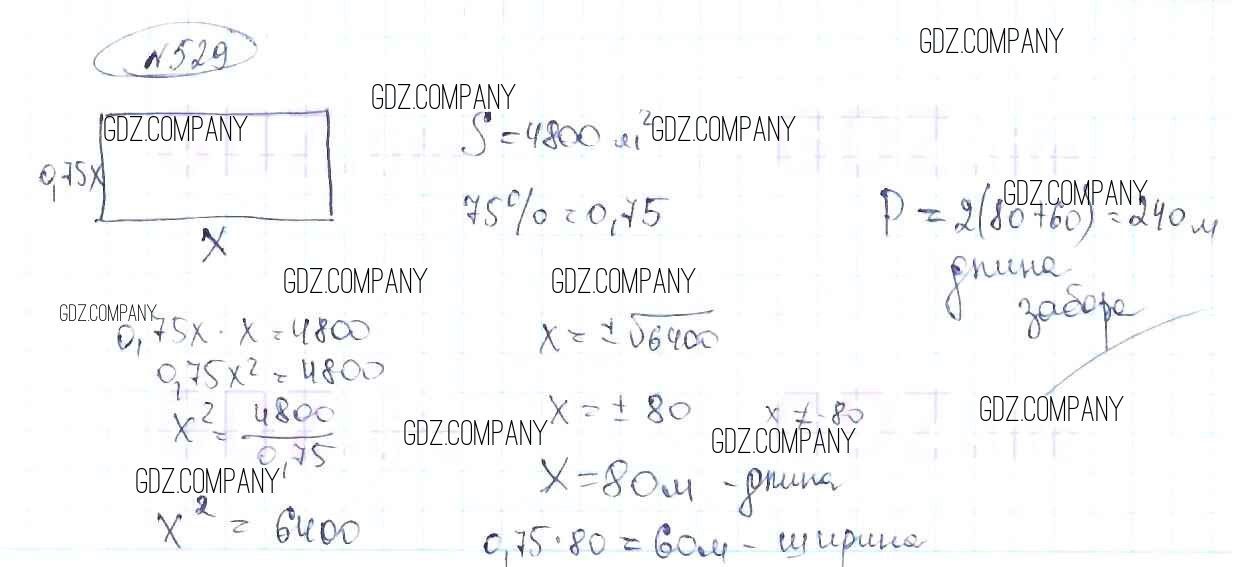 N529
GDZ.COMPANY
GDZ.COMPANY
GDZ.COMPANY
0,75x
x
S = 4800 м² GDZ.COMPANY
75% = 0,75
GDZ.COMPANY
P = 2(80+60) = 240 м
длина
забора
GDZ.COMPANY
GDZ.COMPANY
GDZ.COMPANY
0,75x · x = 4800
0,75x² = 4800
x² = 4800/0,75
GDZ.COMPANY
x² = 6400
x = ±√6400
x = ± 80
x ≠ -80
GDZ.COMPANY
GDZ.COMPANY
GDZ.COMPANY
x = 80м - длина
0,75·80 = 60м - ширина